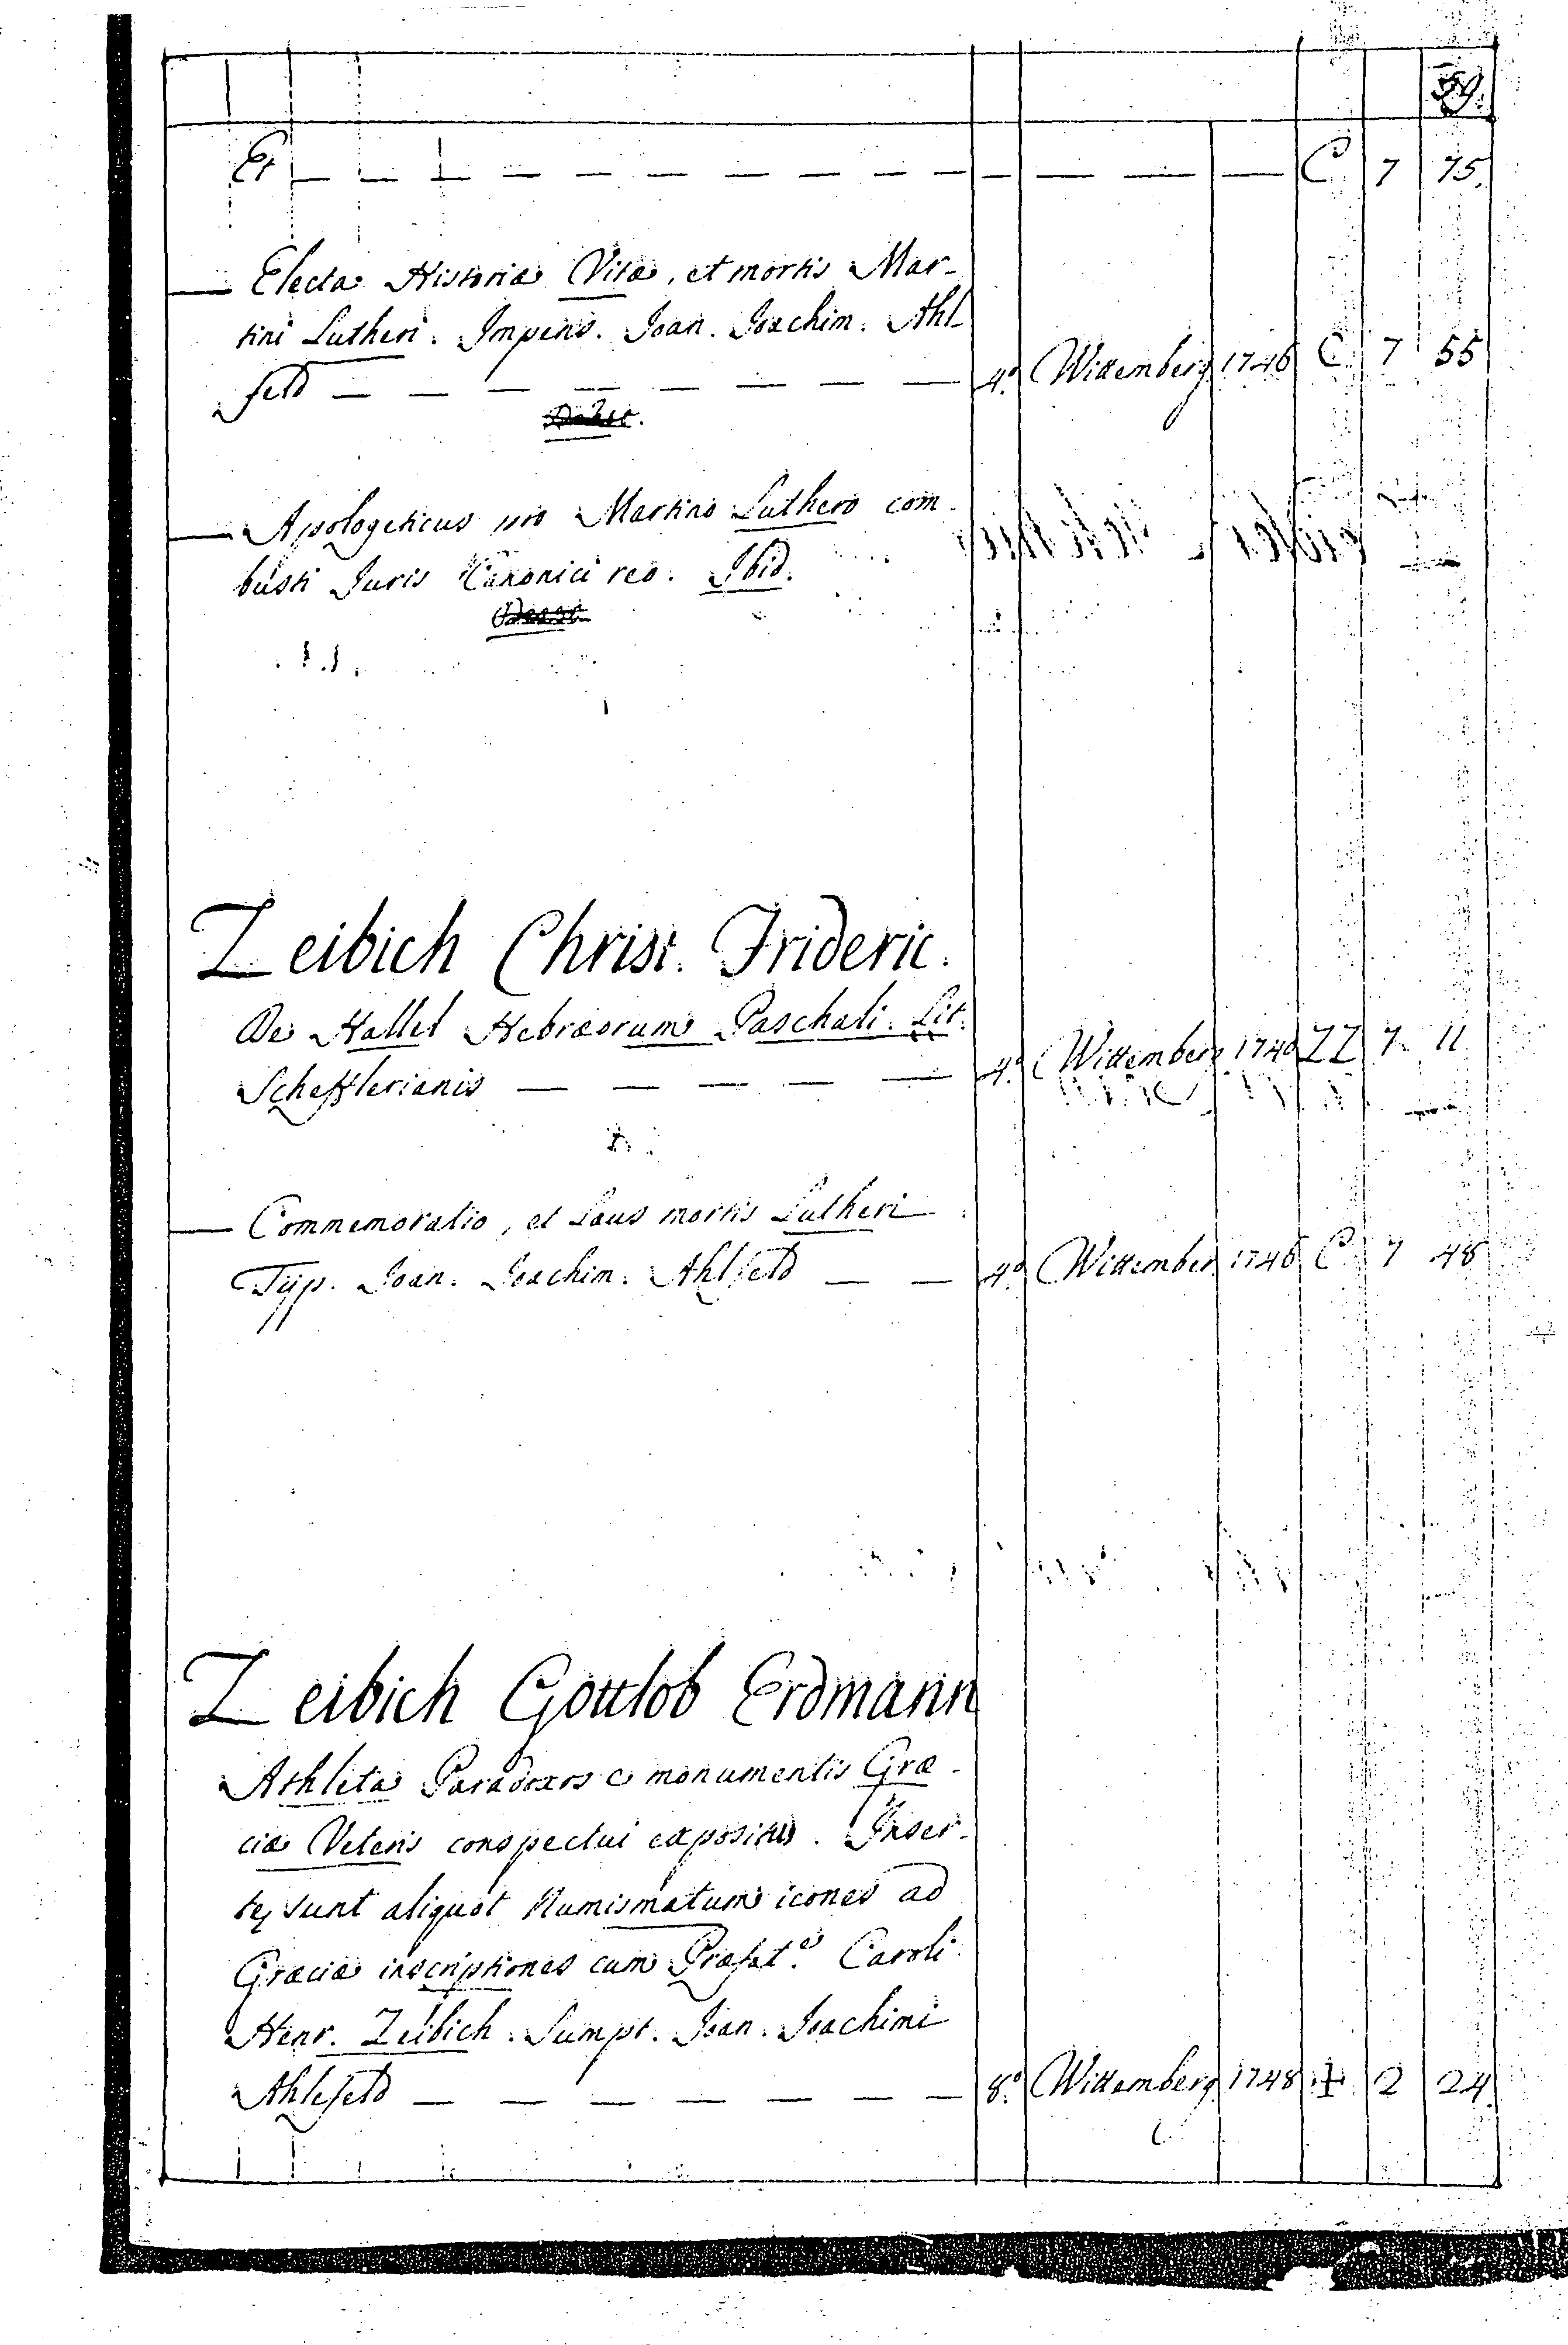 59.
Et — — — — — — — — — — — — — C 7 75.
— Electa Historiæ Vitæ, et mortis Mar-
tini Lutheri. Impens. Joan. Joachim. Ahl-
feld — — — — — — — — 4.º Wittemberg 1746 C 7 55
— Apologeticus pro Martino Luthero com-
busti Juris Canonici reo. Ibid.
Zeibich Christ. Frideric.
De Hallel Hebræorum Paschali. Lit.
Schefflerianis — — — — — 4.º Wittemberg 1740 ZZ 7 11
— Commemoratio, et Laus mortis Lutheri
Typ. Joan. Joachim. Ahlfeld — — 4.º Wittember 1746 C 7 48
Zeibich Gottlob Erdmann
Athleta Paradoxos e monumentis Græ-
ciæ Veteris conspectui expositus. Inser-
tę sunt aliquot Numismatum icones ad
Græciæ inscriptiones cum Præfat.e Caroli
Henr. Zeibich. Sumpt. Joan. Joachimi
Ahlefeld — — — — — — — 8.º Wittemberg 1748 ‡ 2 24.